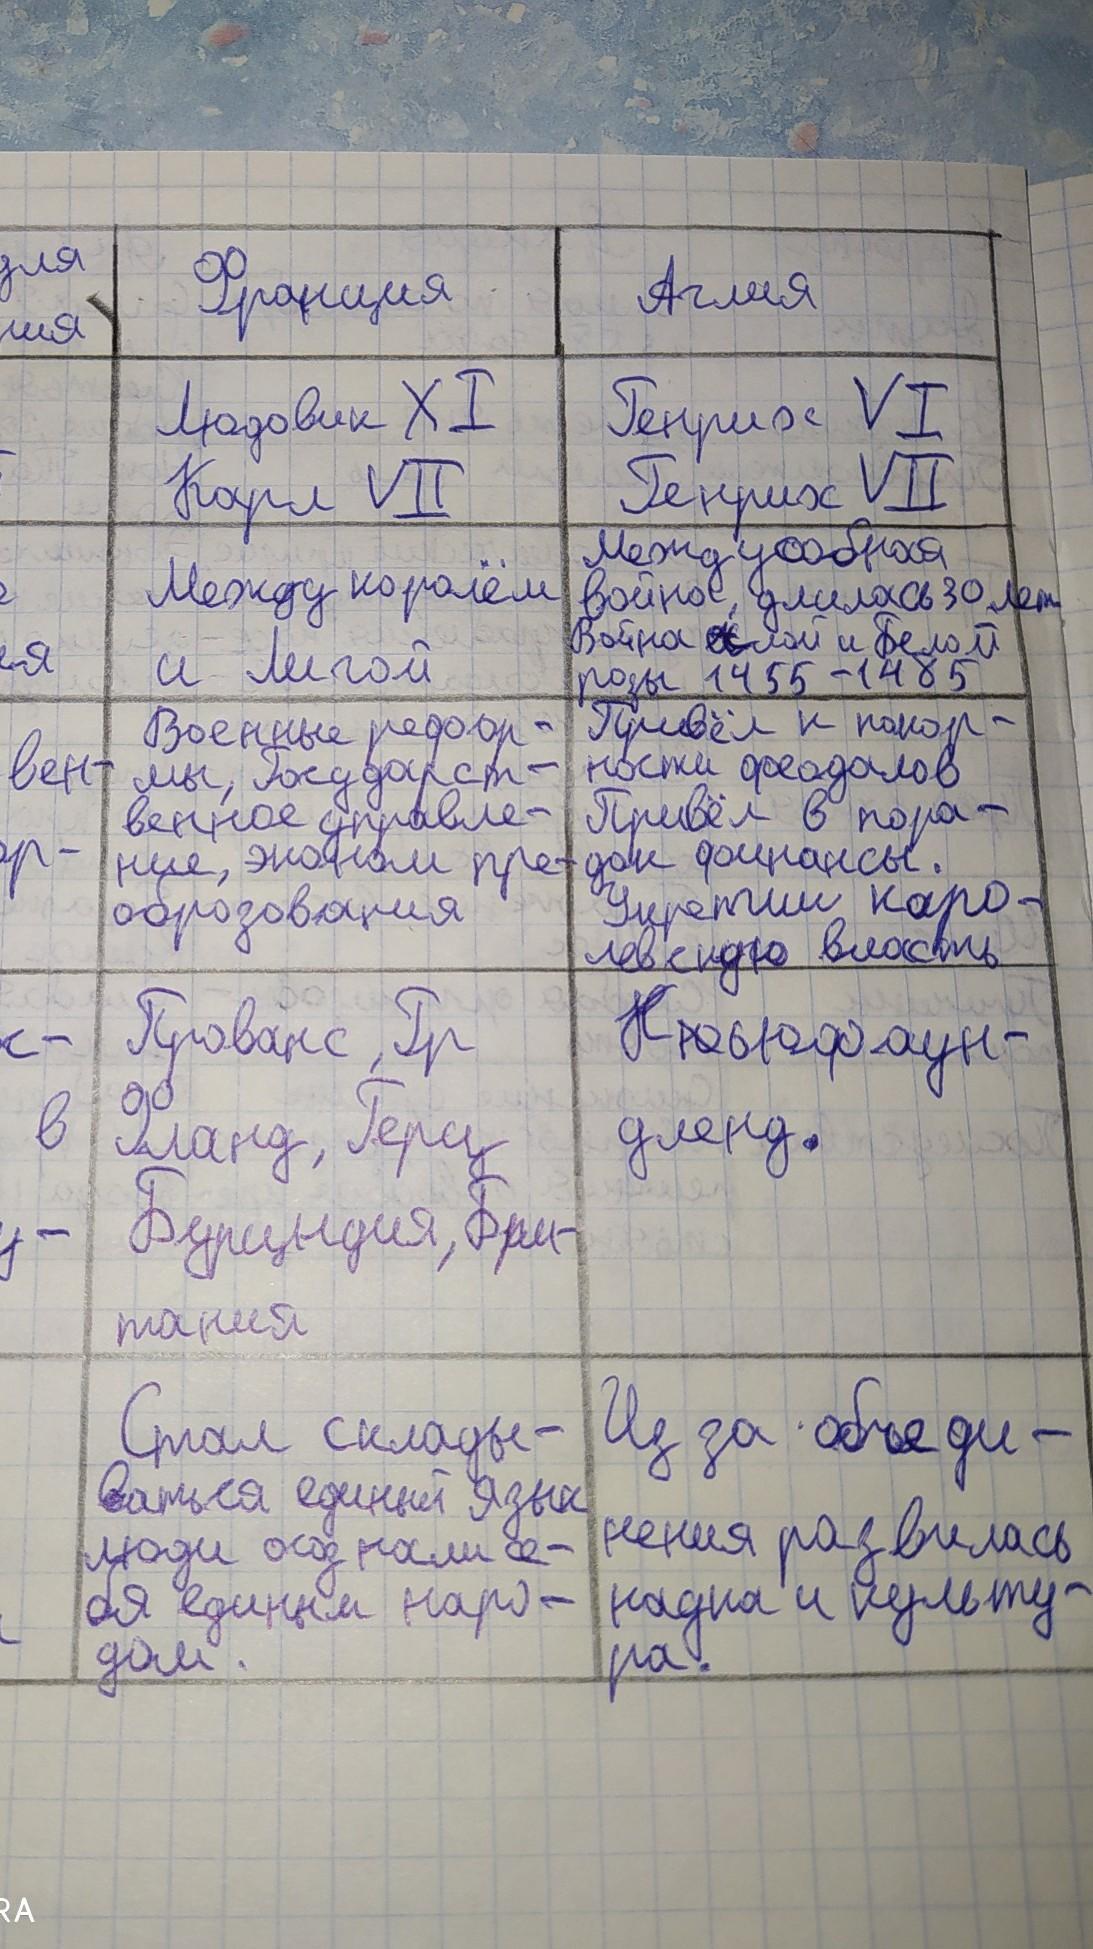 для
ния
Франция
Аглия
Людовик XI
Карл VII
Генрих VI
Генрих VII
Между королём
и Лигой
Междуусобная
война, длилась 30 лет
Война Алой и Белой
розы 1455-1485
вен-
ор-
Военные рефор-
мы, Государст-
венное управле-
ние, эконом пре-
образования
Привёл к покор-
ности феодалов
Привёл в поря-
док финансы.
Укрепил каро-
левскую власть
в
у-
Прованс, Гр
Фланд, Герц
Бургундия, Бри-
тания
Ньюфаун-
дленд.
Стал склады-
ваться единый язык
люди осознали се-
бя единым наро-
дом.
Из за объеди-
нения развилась
наука и культу-
ра.
RA